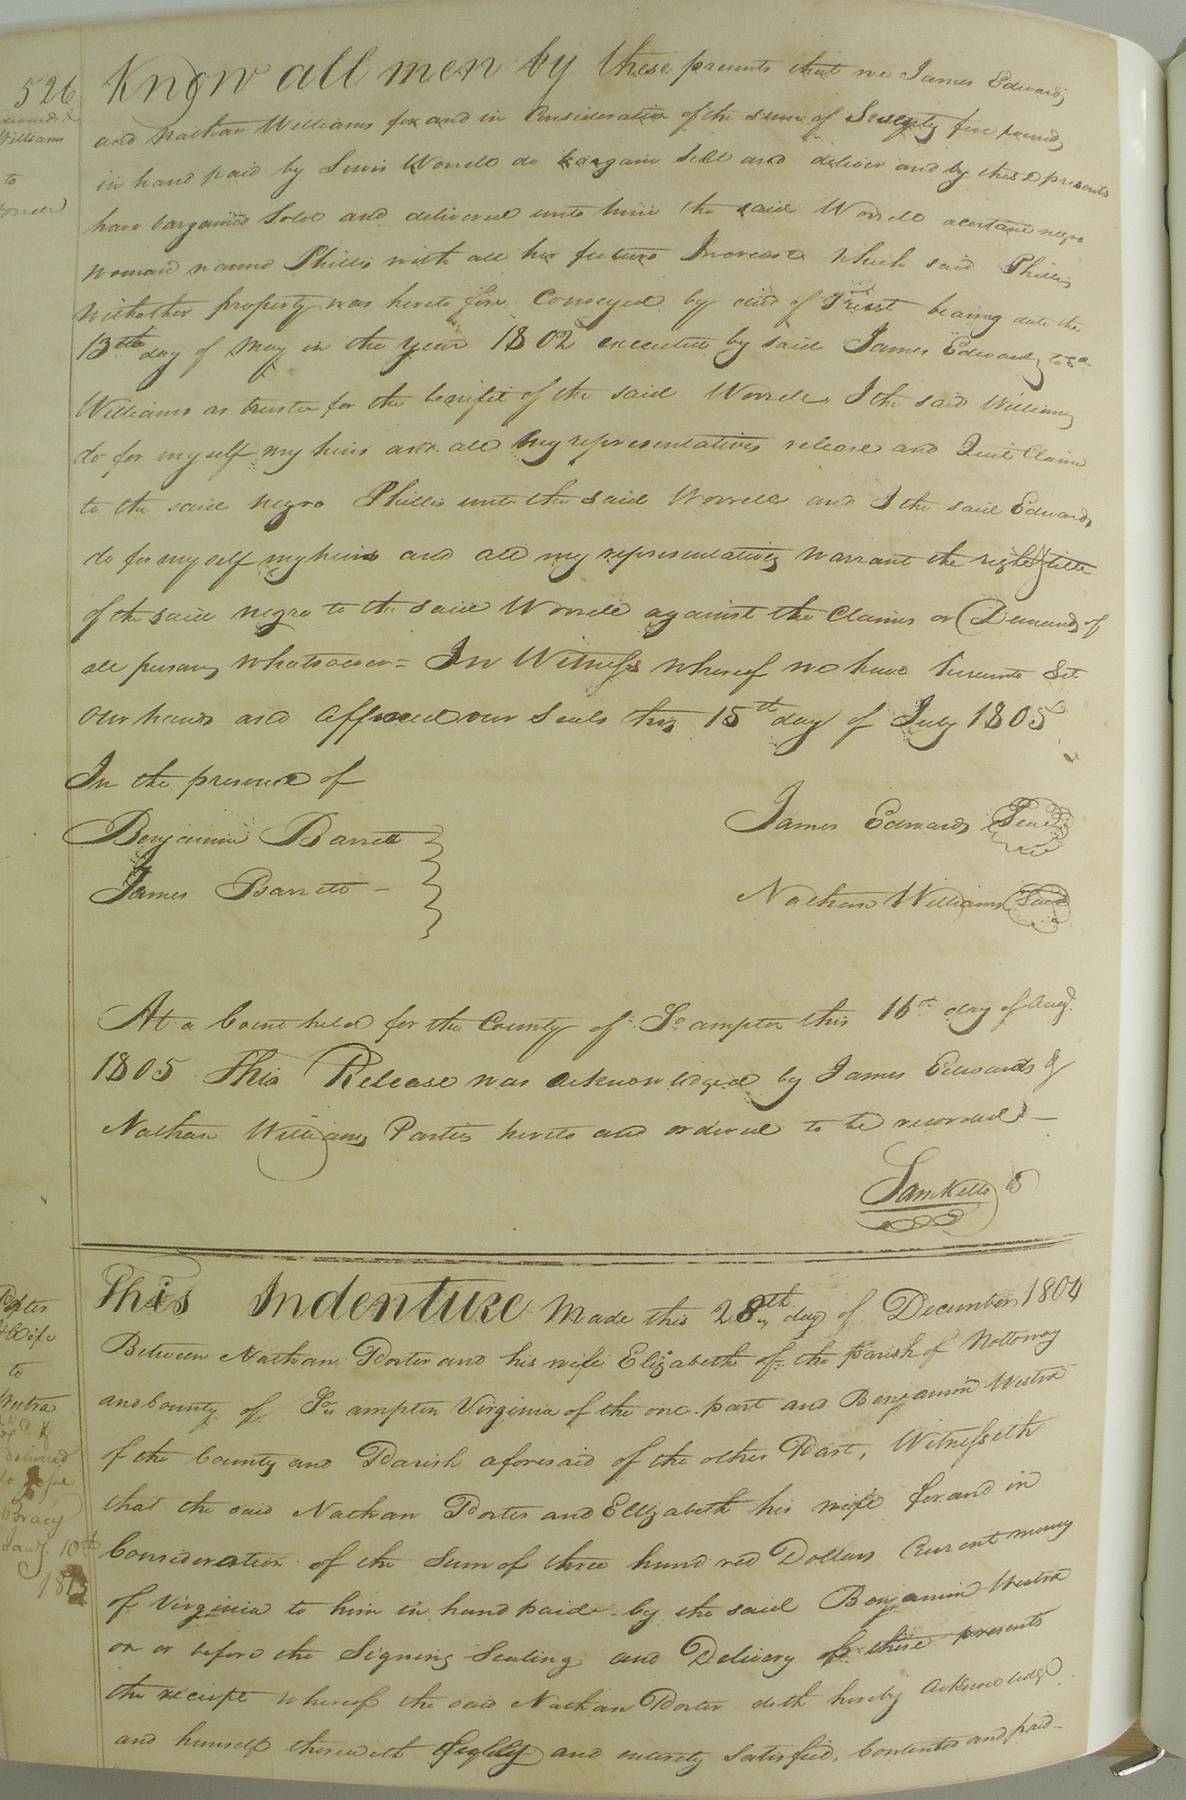 526
Edwards &
Williams
to
Worrell
Know all men by these presents that we James Edwards
and Nathan Williams for and in Consideration of the sum of Seventy five pounds
in hand paid by Lewis Worrell do bargain Sell and deliver and by these presents
have bargained Sold and delivered unto him the said Worrell a certain negro
woman named Phillis with all her future Increase which said Phillis
with other property was hereto fore Conveyed by deed of Trust bearing date the
13th day of May in the year 1802 executed by said James Edwards to sd
Williams as trustee for the benifit of the said Worrell, I the said Williams
do for myself my heirs and all my representatives release and Quit Claim
to the said negro Phillis unto the said Worrell and I the said Edwards
do for my self my heirs and all my representatives warrant the right & title
of the said negro to the said Worrell against the Claims or Demands of
all persons whatsoever = In Witness whereof we have hereunto Set
our hands and affixed our Seals this 15th day of July 1805
In the presence of
Benjamin Barrett
James Barrett –
James Edwards Seal
Nathan Williams Seal
At a Court held for the County of So ampton this 16th day of Augt
1805 This Release was acknowledged by James Edwards &
Nathan Williams Parties hereto and ordered to be recorded –
Sam Kello
Porter
& Wife
to
Westra
delivered
to Jesse
Bracy
Jany. 10th
This Indenture Made this 28th day of December 1804
Between Nathan Porter and his wife Elizabeth of the Parish of Nottoway
and County of So ampton Virginia of the one part and Benjamin Westra
of the County and Parish aforesaid of the other Part, Witnesseth
that the said Nathan Porter and Elizabeth his wife for and in
Consideration of the Sum of three hundred Dollars Current money
of Virginia to him in hand paid by the said Benjamin Westra
on or before the Signing Sealing and Delivery of these presents
the receipt whereof the said Nathan Porter doth hereby acknowledge
and himself therewith and entirely Satisfied, Contented and paid –